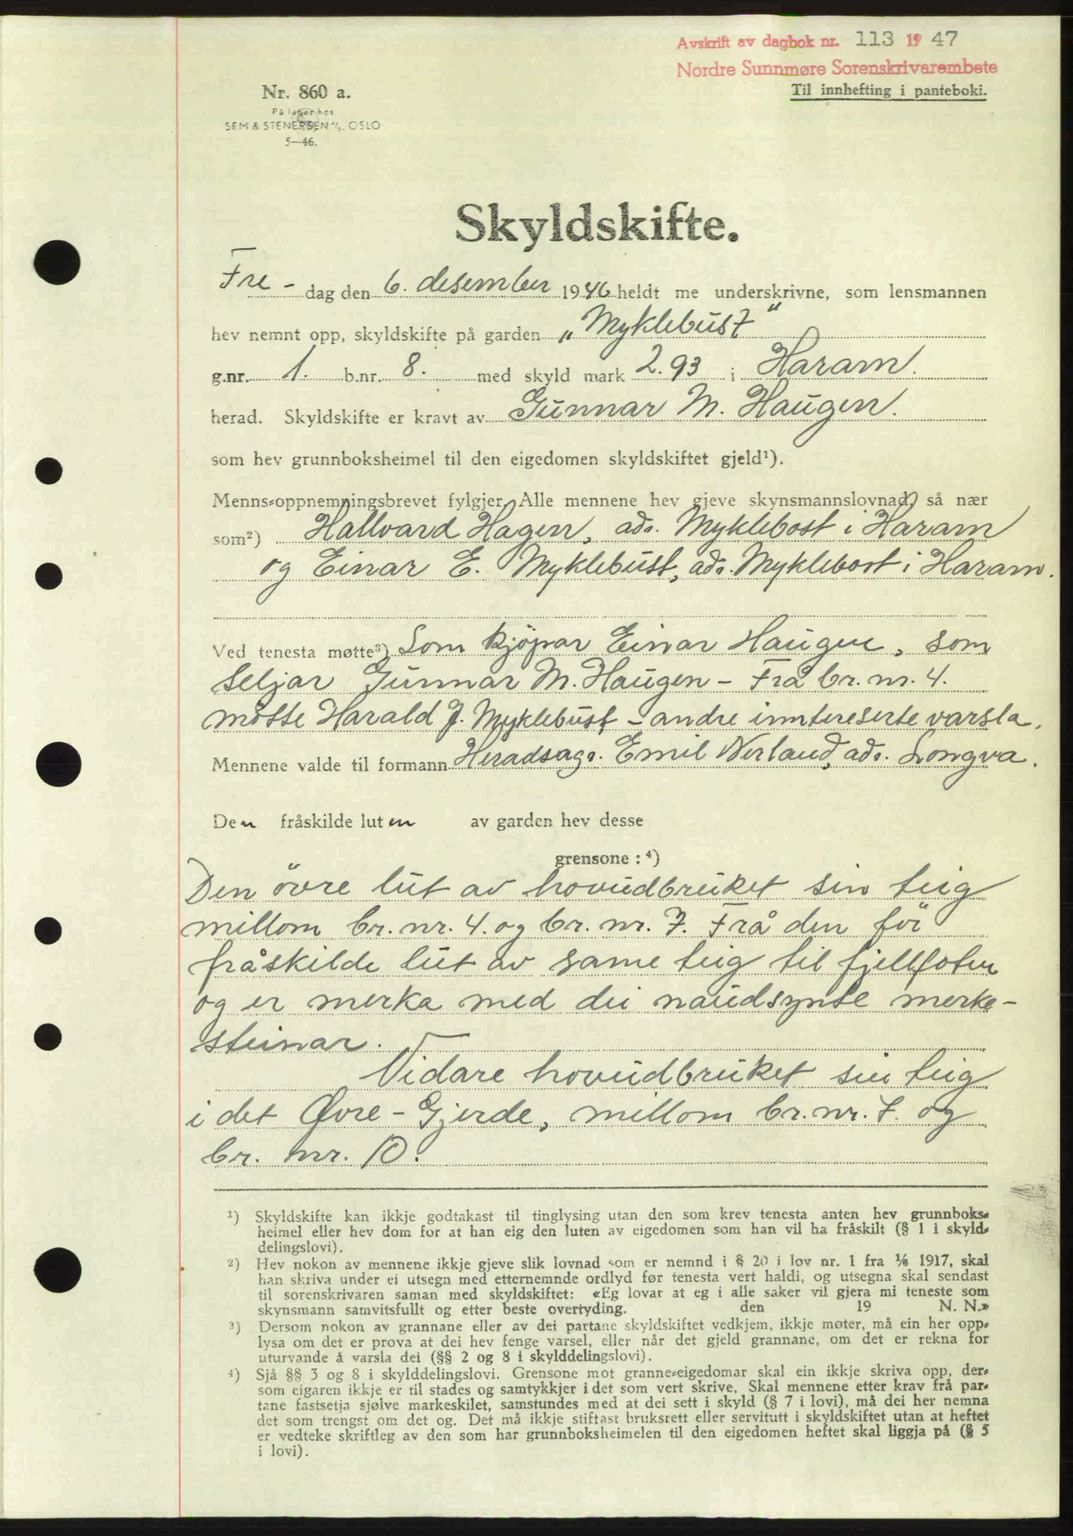 Avskrift av dagbok nr. 113 19 47
Nordre Sunnmøre Sorenskrivarembete
Til innhefting i panteboki.
Nr. 860 a.
På lager hos
SEM & STENERSEN A/S. OSLO
5—46.
Skyldskifte.
Fre - dag den 6. desember 1946 heldt me underskrivne, som lensmannen
hev nemnt opp, skyldskifte på garden „Myklebust"
g.nr. 1. b.nr. 8. med skyld mark 2.93 i Haram.
herad. Skyldskifte er kravt av Gunnar M. Haugen.
som hev grunnboksheimel til den eigedomen skyldskiftet gjeld¹).
Menns-oppnemningsbrevet fylgjer. Alle mennene hev gjeve skynsmannslovnad, så nær
som²) Hallvard Hagen, ads. Myklebost i Haram
og Einar E. Myklebust, ads. Myklebost i Haram.
Ved tenesta møtte³) Som kjöpar Einar Haugen, som
seljar Gunnar M. Haugen - Frå br. nr. 4.
møtte Harald J. Myklebust - andre inntereserte varsla.
Mennene valde til formann Heradsags. Emil Nerland, ads. Longva.
Den fråskilde luten av garden hev desse
grensone : ⁴)
Den övre lut av hovudbruket sin teig
millom br. nr. 4. og br. nr. 7. Frå den för
fråskilde lut av same teig til fjellfoten
og er merka med dei naudsynte merke-
steinar.
Vidare hovudbruket sin teig
i det Øvre-Gjerde, millom br. nr. 7. og
br. nr. 10.
¹) Skyldskifte kan ikkje godtakast til tinglysing utan den som krev tenesta anten hev grunnboks-
heimel eller hev dom for at han eig den luten av eigedomen som han vil ha fråskilt (§ 1 i skyld-
delingslovi).
²) Hev nokon av mennene ikkje gjeve slik lovnad som er nemnd i § 20 i lov nr. 1 fra ⅙ 1917, skal
han skriva under ei utsegn med etternemnde ordlyd før tenesta vert haldi, og utsegna skal sendast
til sorenskrivaren saman med skyldskiftet: «Eg lovar at eg i alle saker vil gjera mi teneste som
skynsmann samvitsfullt og etter beste overtyding. den 19 N. N.»
³) Dersom nokon av grannane eller av dei partane skyldskiftet vedkjem, ikkje møter, må ein her opp-
lysa om det er prova at dei hev fenge varsel, eller når det gjeld grannane, om det er rekna for
uturvande å varsla dei (§§ 2 og 8 i skylddelingslovi).
⁴) Sjå §§ 3 og 8 i skylddelingslovi. Grensone mot granne-eigedomar skal ein ikkje skriva opp, der-
som eigaren ikkje er til stades og samtykkjer i det som vert skrive. Skal mennene etter krav frå par-
tane fastsetja sjølve markeskilet, samstundes med at dei sett i skyld (§ 7 i lovi), må dei her nemna
det som trengst om det og. Det må ikkje stiftast bruksrett eller servitutt i skyldskiftet utan at heftet
er vedteke skriftleg av den som har grunnboksheimelen til den eigedomen heftet skal liggja på (§ 5
i lovi).